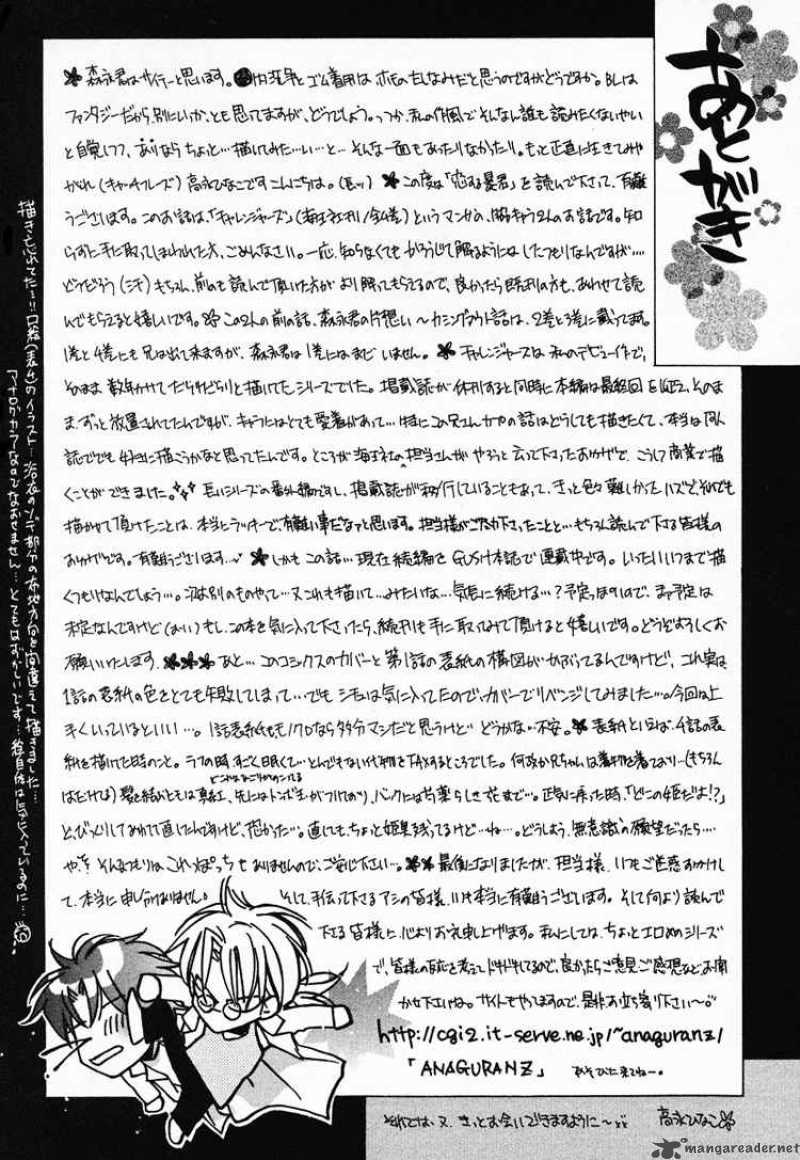 あとがき
森永君はサイテーと思います。
ゴム着用はホモのたしなみだと思うのですがどうですか。BLは
ファンタジーだから別にいいか、とも思ってますが、どうでしょう。っつか、私の作風でそんなん誰も読みたくないやい
と自覚しつつ、ありならちょっと…描いてみた…い…と…そんな一面もあったりなかったり。もっと正直に生きてみや
がれ(キャッチフレーズ)高永ひなこですこんにちは。(長ッ) この度は「恋する暴君」を読んで下さって、有難
うございます。このお話は、「チャレンジャーズ」(海王社刊/全4巻)というマンガの、脇キャラ2人のお話です。知
らずに手に取ってしまわれた方、ごめんなさい。一応、知らなくてもかろうじて解るようにはしたつもりなんですが…
どうだろう もちろん、前のも読んで頂いた方がより解ってもらえるので、良かったら既刊の方も、あわせて読
んでもらえると嬉しいです。この2人の前の話、森永君の片想い〜カミングアウト話は、2巻と3巻に載ってます。
1巻と4巻にも兄は出て来ますが、森永君は1巻にはまだいません。チャレンジャーズは私のデビュー作で、
そのまま数年かけてだらだらと描いてたシリーズでした。掲載誌が休刊すると同時に本編は最終回を迎え、そのま
ま、ずっと放置されてたんですが、キャラにはとても愛着があって…特にこの兄さんの話はどうしても描きたくて、本当は同人
誌ででも好きに描こうかなと思ってたんです。ところが海王社の担当さんがやろうと云って下さったおかげで、こうして商業で描
くことができました。長いシリーズの番外編ですし、掲載誌が移行していることもあって、きっと色々難しかったハズで、それでも
描かせて頂けたことは、本当にラッキーで有難い事だなァと思います。担当様がご尽力下さったことと…もちろん読んで下さる皆様の
おかげです。有難うございます… しかもこの話…現在続編をGUSH本誌で連載中です。いったいいつまで描
くつもりなんでしょう…。次は別のものやって…又これも描いて…みたいな…気長に続ける…?予定っぽいので、まァ予定は
未定なんですけど(おい)もし、この本を気に入って下さったら、続刊も手に取ってみて頂けると嬉しいです。どうぞよろしくお
願いいたします。あと…このコミックスのカバーと第1話の表紙の構図がかぶってるんですけど、これ実は
1話の表紙の色をとても失敗してしまって…でもシチュは気に入ってたので、カバーでリベンジしてみました…。今回は上
手くいっているといい…。1話表紙もモノクロなら多分マシだと思うけど どうかな…不安。表紙と云えば、4話の表
紙を描いてた時のこと。ラフの時すごく眠くて…とんでもない代物をFAXするところでした。何故か兄ちゃんは着物を着ており…(もちろん
はだけて)髪を結おうともは真紅、先にはトンボ玉がついており、バックには若葉らしき花まで…。正気に戻った時、「どこの姫だよ!?」
と、びっくりしてあわてて直したんですけど、危かった…。直しても、ちょっと姫臭残ってるけど…ね…。どうしよう、無意識の願望だったら…
や、そんなつもりはこれっぽっちもありませんので、ご安心下さい…。最後になりましたが、担当様、いつもご迷惑おかけし
て、本当に申し訳ありません。そして、手伝って下さるアシの皆様、いつも本当に有難うございます。そして何より読んで
下さる皆様に、心よりお礼申し上げます。私にしては、ちょっとエロめのシリーズ
で、皆様の反応を考えてドキドキしてるので、良かったらご意見ご感想などお聞
かせ下さいね。サイトもやってますので、是非お立ち寄り下さい〜。
http://cgi2.it-serve.ne.jp/~anaguranz/
「ANAGURANZ」 あそびに来てねー。
それでは、又、きっとお会いできますように〜
高永ひなこ
描き忘れてた〜!!口絵(表4)のイラスト…浴衣のソデ部分の布地方向を間違えて描きました…
アナログカラーなのでなおせません…とてもはずかしいです…絵自体は気に入っているのに…
mangareader.net